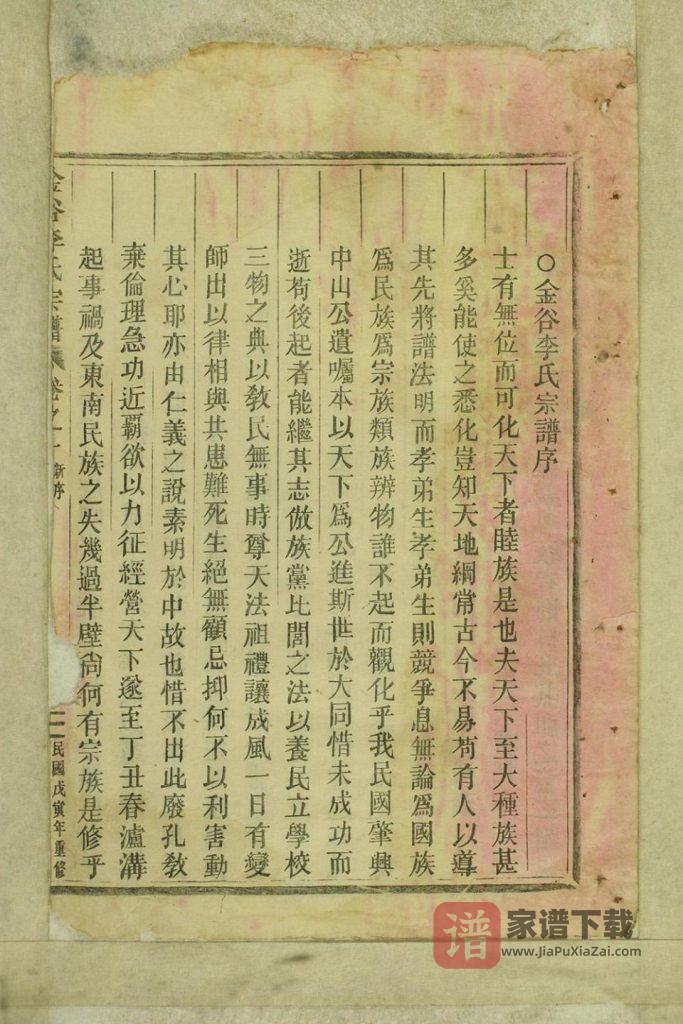 ○金谷李氏宗譜序
士有無位而可化天下者睦族是也夫天下至大種族甚
多奚能使之悉化豈知天地綱常古今不易苟有人以導
其先將譜法明而孝弟生孝弟生則競爭息無論為國族
為民族為宗族類族辨物誰不起而觀化乎我民國肇興
中山公遺囑本以天下為公進斯世於大同惜未成功而
逝苟後起者能繼其志倣族黨比閭之法以養民立學校
三物之典以教民無事時尊天法祖禮讓成風一日有變
師出以律相與共患難死生絕無顧忌抑何不以利害動
其心耶亦由仁義之說素明於中故也惜不出此廢孔教
棄倫理急功近霸欲以力征經營天下遂至丁丑春瀘溝
起事禍及東南民族之失幾過半壁尚何有宗族是修乎
金谷李氏宗譜 卷之一 新序
民國戊寅年重修
谱 家谱下载
www.JiaPuXiaZai.com